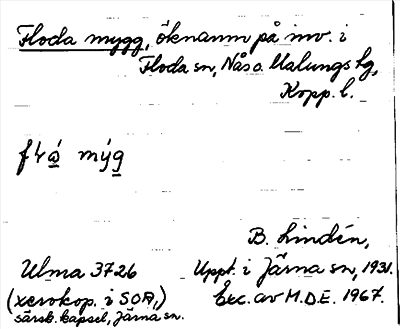 Floda mygg, öknamn på inv. i
Floda sn, Nås o. Malungs hg,
Kopp. l.
mýg
B. Lindén,
Ulma 3726 Uppt. i Järna sn, 1931.
(xerokop. i SOA,) Exc. av M.D.E. 1967.
särsk. kapsel, Järna sn.